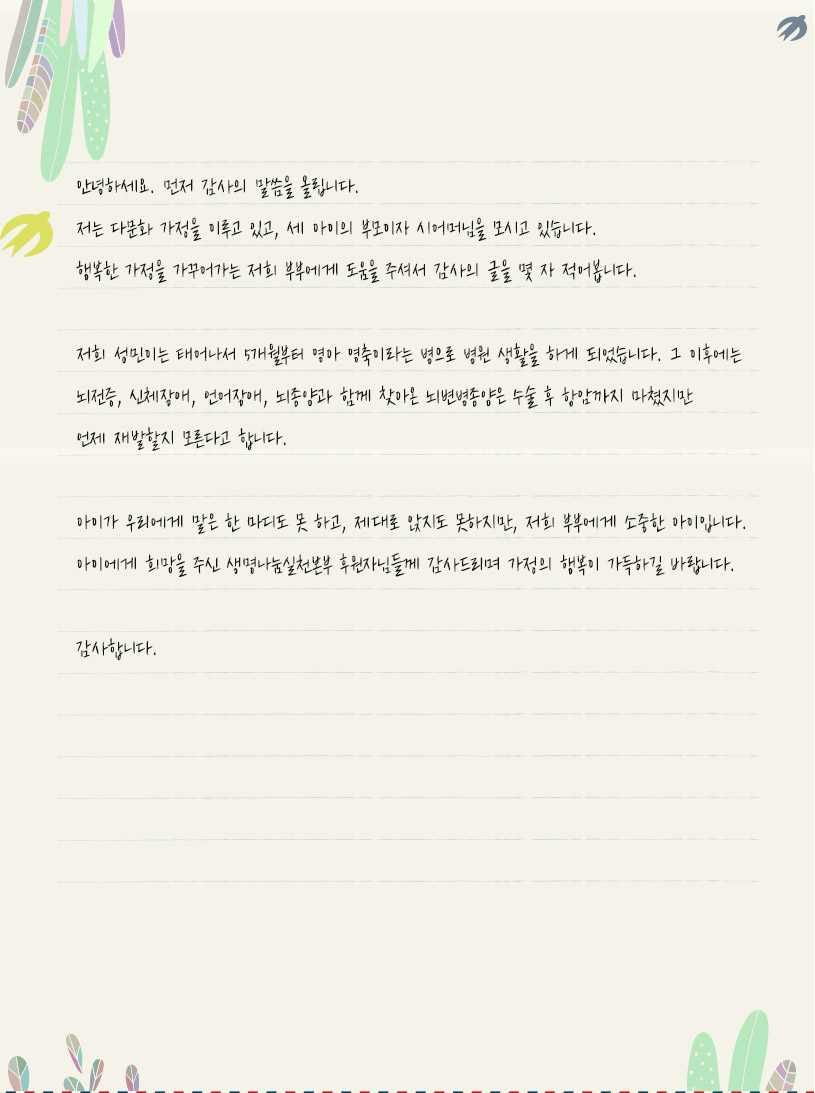 안녕하세요. 먼저 감사의 말씀을 올립니다.
저는 다문화 가정을 이루고 있고, 세 아이의 부모이자 시어머님을 모시고 있습니다.
행복한 가정을 가꾸어가는 저희 부부에게 도움을 주셔서 감사의 글을 몇 자 적어봅니다.
저희 성민이는 태어나서 5개월부터 영아 영축이라는 병으로 병원 생활을 하게 되었습니다. 그 이후에는
뇌전증, 신체장애, 언어장애, 뇌종양과 함께 찾아온 뇌변병종양은 수술 후 항암까지 마쳤지만
언제 재발할지 모른다고 합니다.
아이가 우리에게 말은 한 마디도 못 하고, 제대로 앉지도 못하지만, 저희 부부에게 소중한 아이입니다.
아이에게 희망을 주신 생명나눔실천본부 후원자님들께 감사드리며 가정의 행복이 가득하길 바랍니다.
감사합니다.